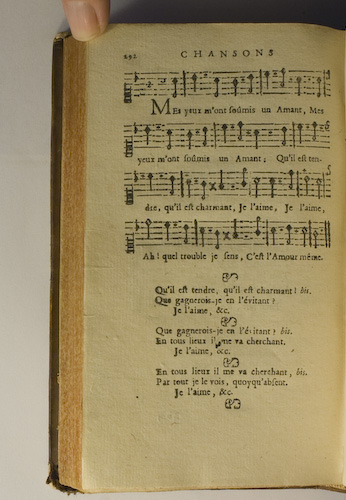 292 CHANSONS
MEs yeux m'ont soûmis un Amant, Mes
yeux m'ont soûmis un Amant; Qu'il est ten-
dre, qu'il est charmant, Je l'aime, Je l'aime,
Ah! quel trouble je sens, C'est l'Amour même.
Qu'il est tendre, qu'il est charmant! bis.
Que gagnerois-je en l'évitant?
Je l'aime, &c.
Que gagnerois-je en l'évitant? bis.
En tous lieux il me va cherchant.
Je l'aime, &c.
En tous lieux il me va cherchant, bis.
Par tout je le vois, quoyqu'absent.
Je l'aime, &c.